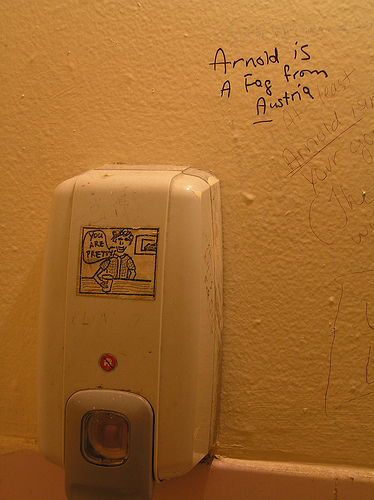 Arnold is
A Fag from
Austria
least
Arnold
your
The
YOU
ARE
PRETTY!